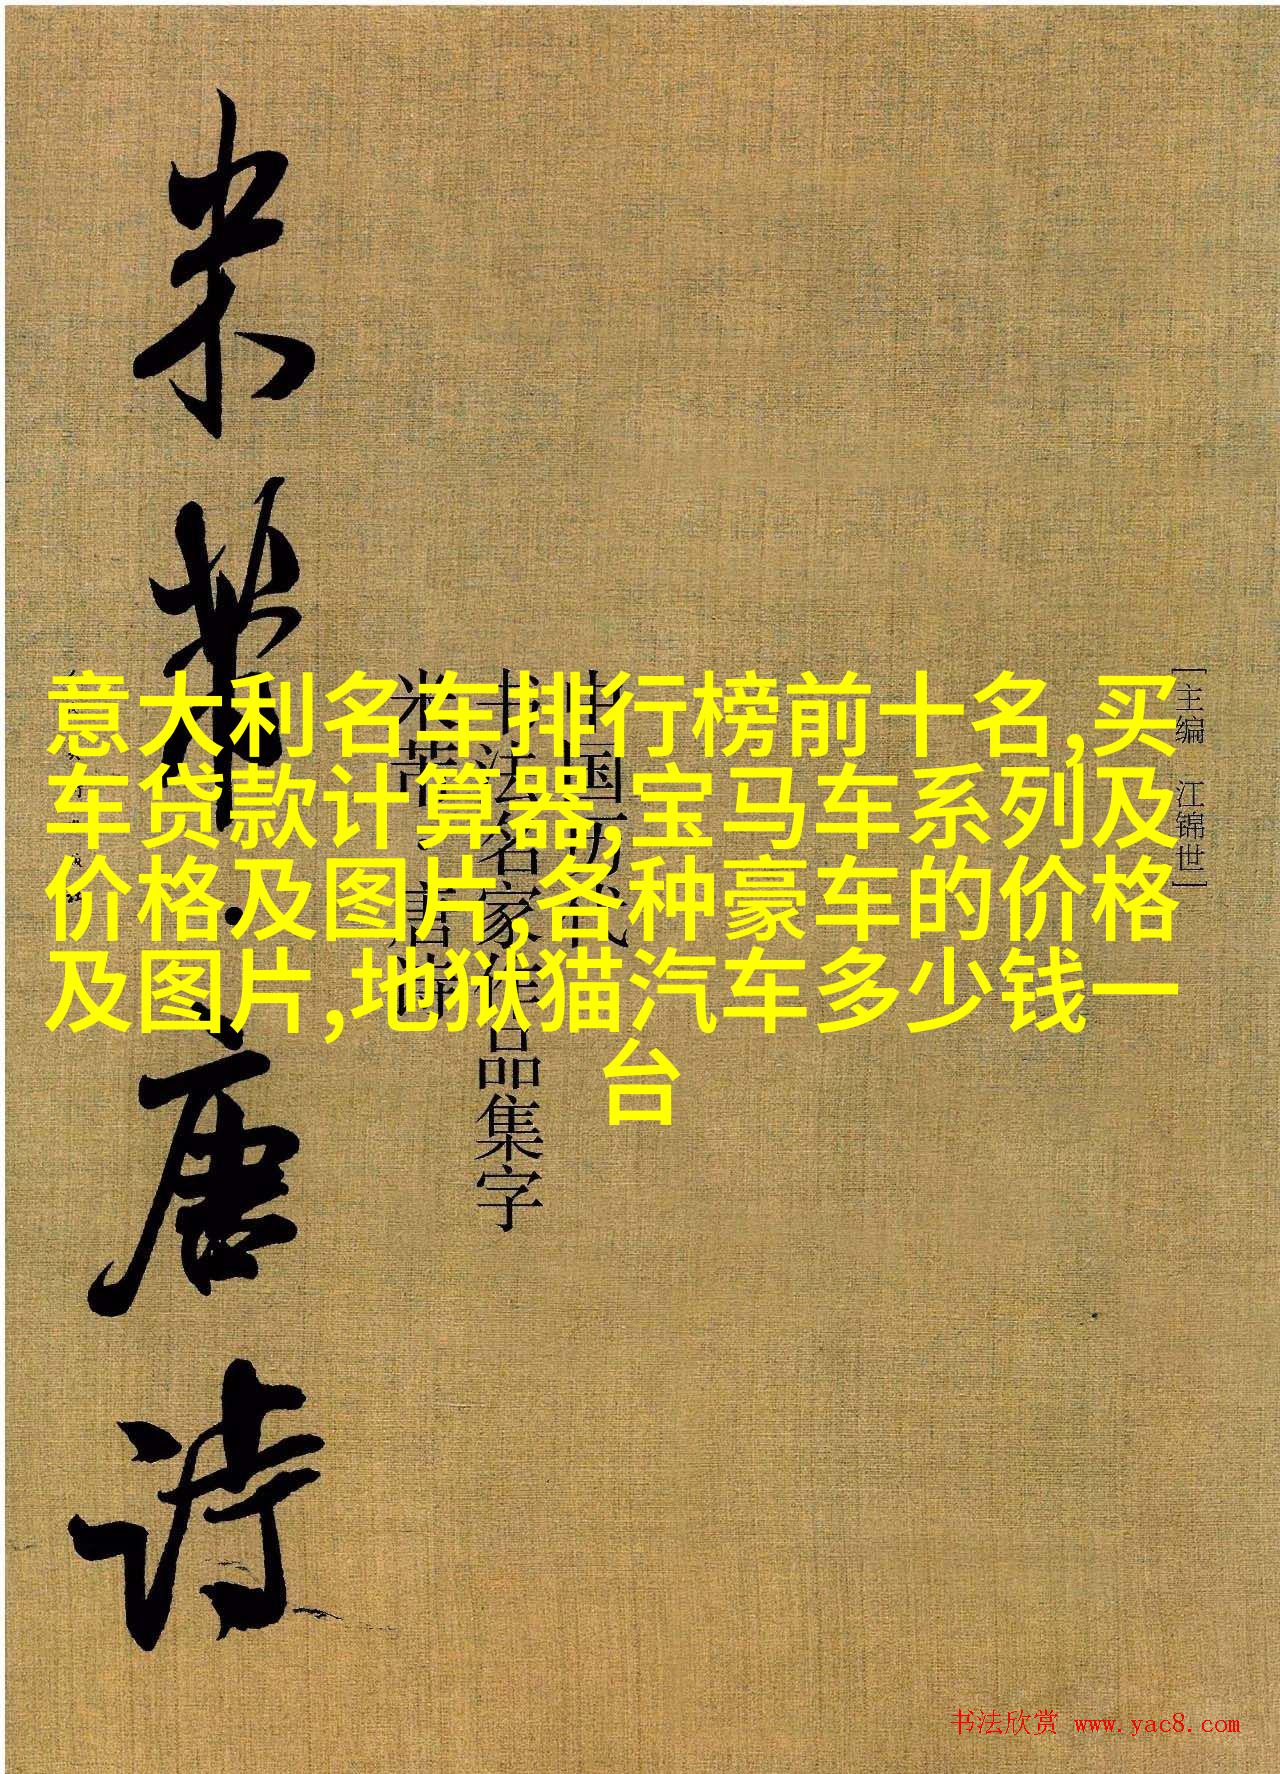 米芾·唐诗
意大利名车排行榜前十名,买
车贷款计算器,宝马车系列及
价格及图片,各种豪车的价格
及图片,地狱猫汽车多少钱一
台
中国历代
书法名家作品集字
米芾·唐诗
[主编 江锦世]
书法欣赏 www.yac8.com